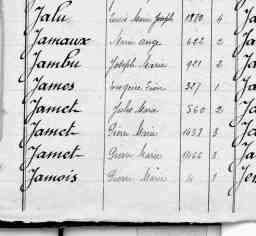 Jalu Louis Marie Joseph 1870 4
Jamaux Marie Ange 622 2
Jambu Joseph Marie 921 2
James Eugène 327 1
Jamet Jules Marie 560 2
Jamet Pierre Marie 3
Jamet Pierre Marie 1166 3
Jamois Pierre Marie 1